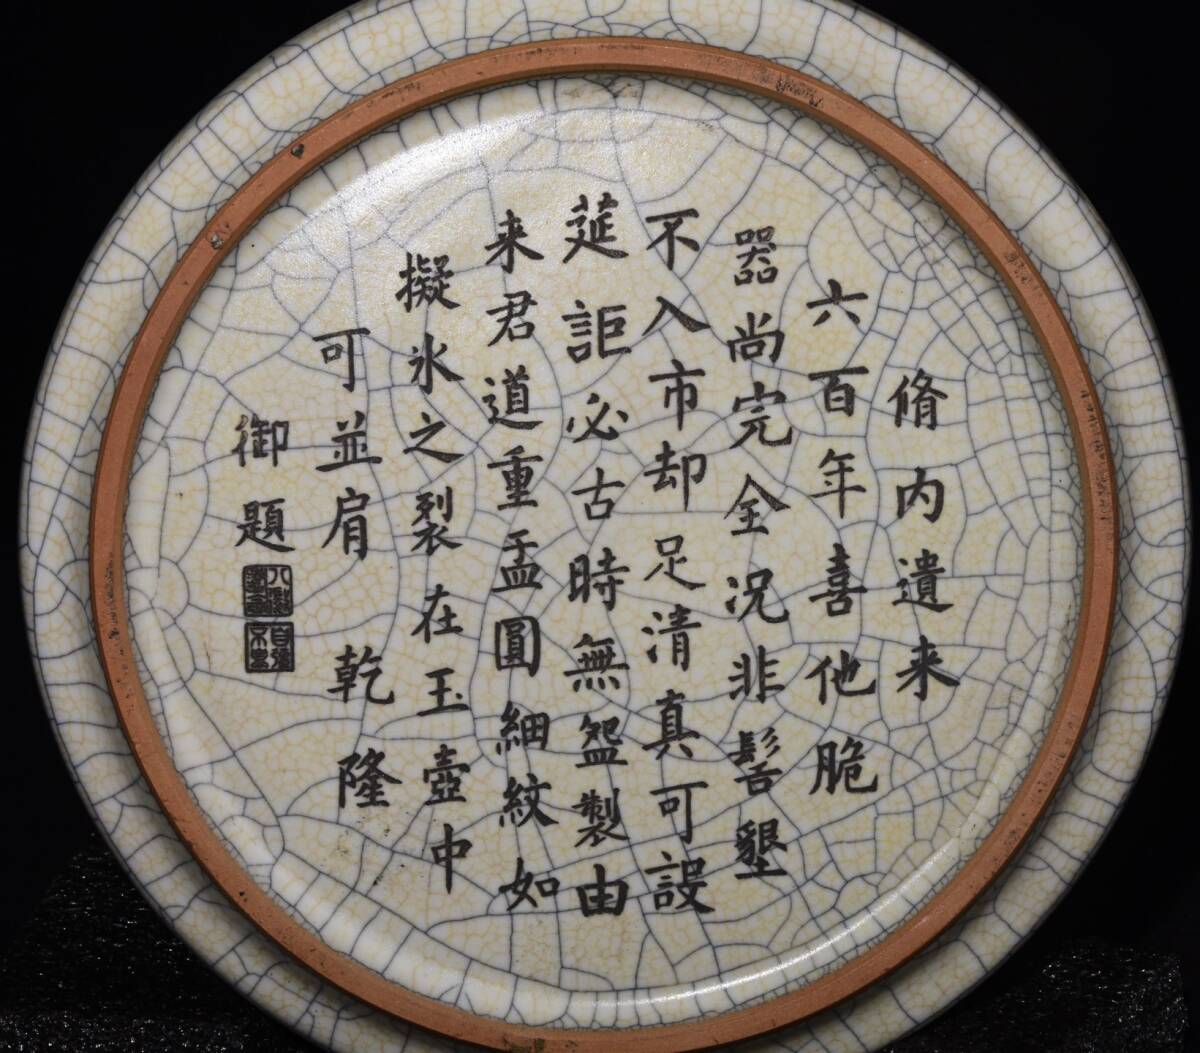 脩内遺来
六百年喜他脆
器尚完全况非髻墾
不入市却足清真可設
莚詎必古時無盌製由
来君道重盂圓細紋如
擬氷之裂在玉壺中
可並肩 乾隆
御題
八徵耄念
自彊不息